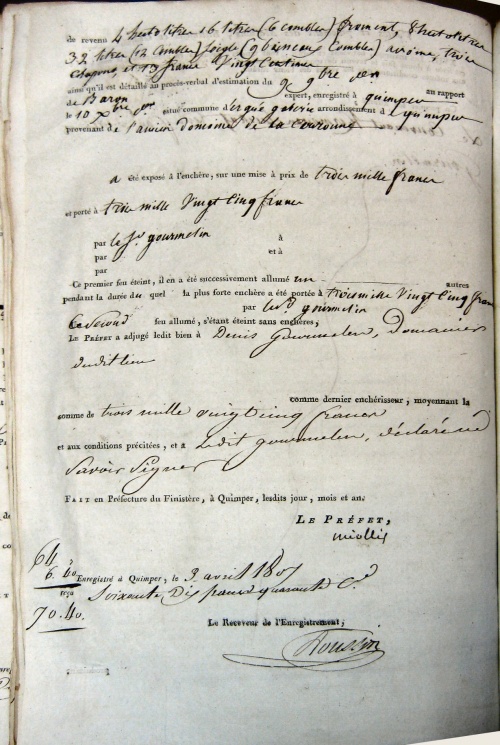 de revenu 4 hectolitres 16 litres (6 combles) froment, 8 hectolitres
32 litres (12 combles) seigle (9 boisseaux combles) avoine, trois
chapons et 13 francs vingt centimes
ainsi qu'il est détaillé au procès-verbal d'estimation du 9 9bre an au rapport
de Baron expert, enregistré à quimper
le 10 Xbre situé commune d'ergué gaberie arrondissement de quimper
provenant de l'ancien domaine de la couronne
a été exposé à l'enchère, sur une mise à prix de trois mille francs
et porté à trois mille vingt cinq francs
par le Sr gourmelen à
par et à
par
Ce premier feu éteint, il en a été successivement allumé un autres
pendant la durée des quel la plus forte enchère a été portée à trois mille vingt cinq francs
par le Sr gourmelen
le Second feu allumé, s'étant éteint sans enchères,
LE PRÉFET a adjugé ledit bien à Denis Gourmelen, Domanier
dudit lieu
comme dernier enchérisseur, moyennant la
somme de trois mille vingt cinq francs
et aux conditions précitées, et a Ledit gourmelen, déclaré ne
savoir Signer
FAIT en Préfecture du Finistère, à Quimper, lesdits jour, mois et an.
LE PRÉFET,
miollis
64
6. 40
70. 40.
Enregistré à Quimper, le 3 avril 1807
Soixante Dix francs quarante Ce
Le Receveur de l'Enregistrement,
Rousson